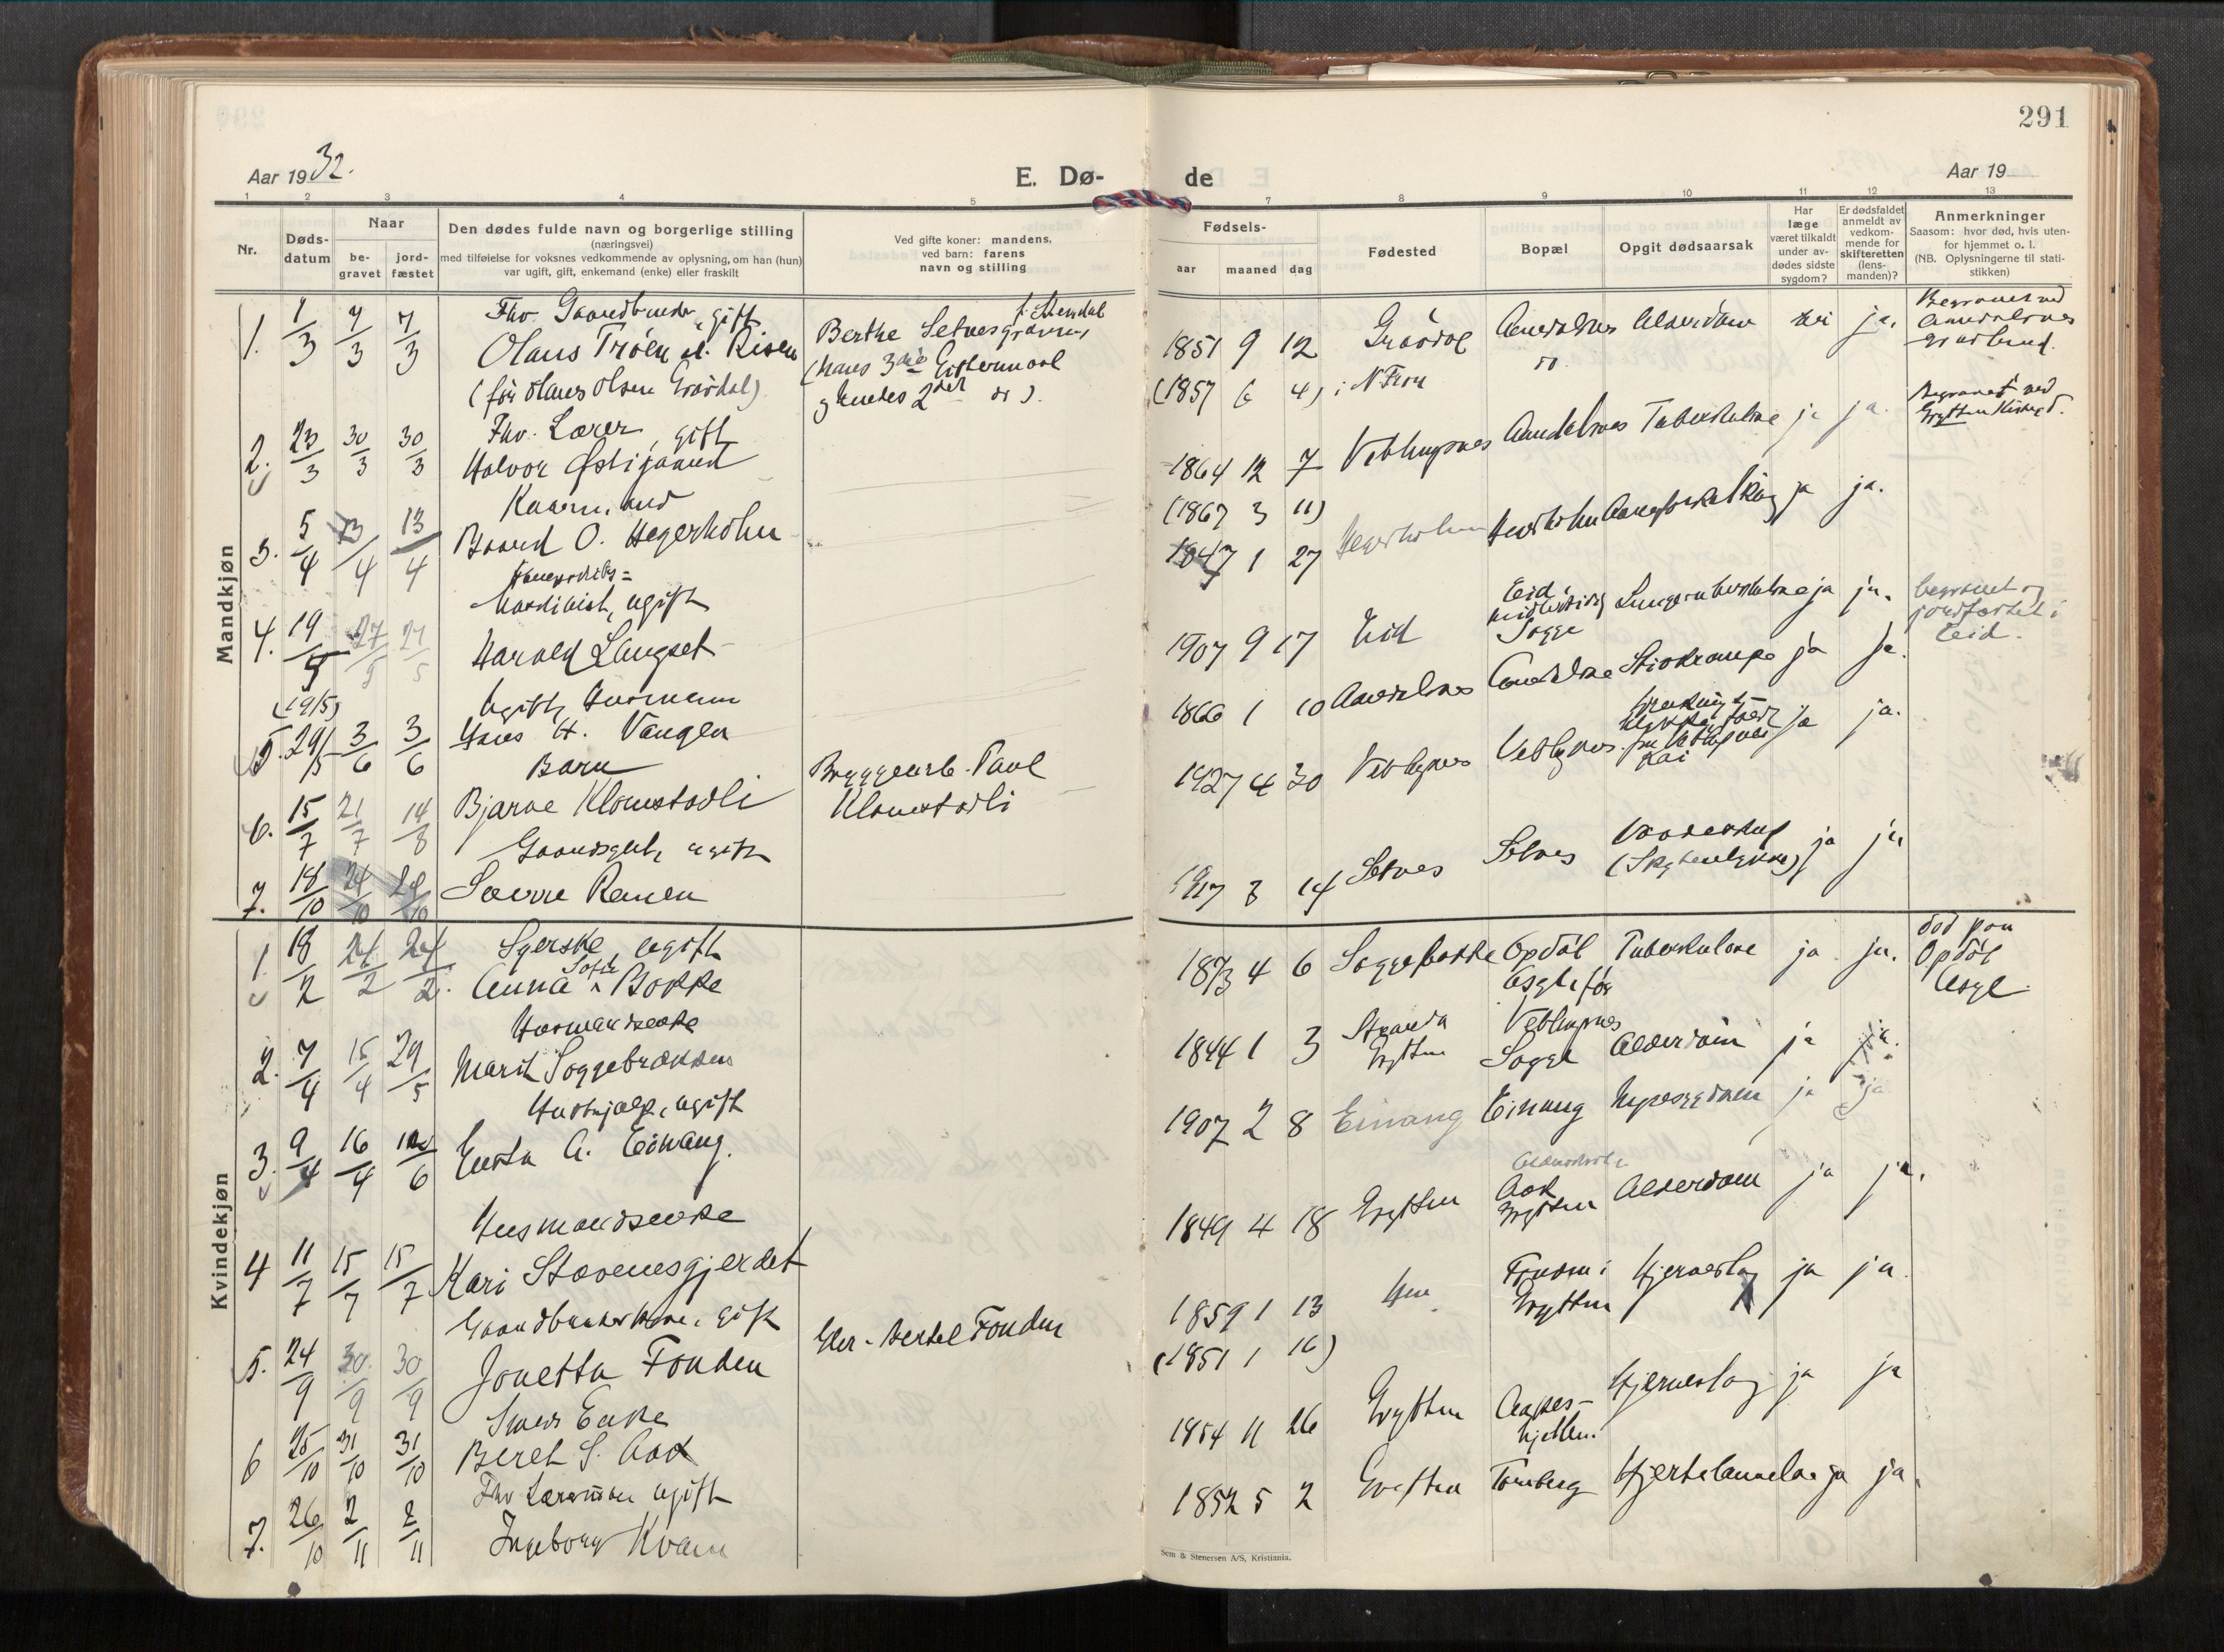 291
Aar 1932.
E. Dø-
de
Aar 19
1 2 3 4 5 7 8 9 10 11 12 13
Nr.
Døds-
datum
Naar
be-
gravet
jord-
fæstet
Den dødes fulde navn og borgerlige stilling
(næringsvei)
med tilføielse for voksnes vedkommende av oplysning, om han (hun)
var ugift, gift, enkemand (enke) eller fraskilt
Ved gifte koner: mandens,
ved barn: farens
navn og stilling
Fødsels-
aar maaned dag
Fødested
Bopæl
Opgit dødsaarsak
Har
læge
været tilkaldt
under av-
dødes sidste
sygdom?
Er dødsfaldet
anmeldt av
vedkom-
mende for
skifteretten
(lens-
manden)?
Anmerkninger
Saasom: hvor død, hvis uten-
for hjemmet o. l.
(NB. Oplysningerne til stati-
stikken)
Mandkjøn
Fhv. Gaardbruker, gift
1. 1/3 7/3 7/3 Olaus Trøen
(før Olaus Olsen Grøvdal)
Berthe Setnesgrøven
(hans 3die Egteskap
og hendes 2det do).
1851 9 12 Grøvdal Aandalsnes Alderdom nei ja.
(1857 6 4) i N Fron do.
Begravet ved
Aandalsnes
Fhv. Lærer, gift
2. 23/3 30/3 30/3 Halvor Østigaard
1864 12 7 Veblungsnes Aandalsnes Tuberkulose ja ja.
(1867 3 11)
Begravet ved
Grytten
Kaarmand
3. 5/4 13/4 13/4 Baard O. Hegerholm
1847 1 27 Hegerholm ja ja.
ugift
4. 19/4 27/5 27/5 Harald Langset
1907 9 17 Eid
Eid
midlertidig
Sogge
Lungetuberkulose ja ja.
begravet og
jordfæstet i
Eid.
(19/5)
Ugift
5. 29/5 3/6 3/6 Hans H. Vangen
1866 1 10 Aandalsnes ja ja.
Barn
6. 15/7 21/7 14/8 Bjarne Klomstadli
Paul
Klomstadli
1927 4 30 Veblungsnes Veblungsnes
kai
ja ja.
Gaardsgut, ugift
7. 18/10 24/10 24/10 Sverre Ramen
1917 8 14 Setnes Setnes
ja ja
Kvindekjøn
Syerske, ugift
1. 18/2 24/2 24/2. Anna Sofie Bakke
1873 4 6 Soggebakke Opdøl
Asyl, før
Veblungsnes
Tuberkulose ja ja.
død paa
Opdøl
Asyl
Husmandsenke
2. 7/4 15/4 29/5 Marit Soggebrækken
1844 1 3 Stranda
Grytten
Sogge Alderdom ja ja.
Hushjælp, ugift
3. 9/4 16/4 12/6 A. Einang.
1907 2 8 Einang Einang Nyresygdom ja ja
Husmandsenke
4 11/7 15/7 15/7 Kari Stavnesgjerdet
1849 4 18 Grytten
Aak
Grytten
Alderdom ja ja.
Gaardbrukerkone, gift
5. 24/9 30/9 30/9 Jonetta Fonden
Hertel Fonden
1859 1 13 Hen
Grytten
Hjerneslag ja ja.
(1851 1 16)
Smeds Enke
6 25/10 31/10 31/10 Beret S. Aak
1854 11 26 Grytten Hjerneslag ja ja
Fhv Lærerinde ugift
7. 26/10 2/11 2/11 Ingeborg Kvam
1852 5 2 Grytten Tomberg Hjertelammelse ja ja.
Sem & Stenersen A/S, Kristiania.